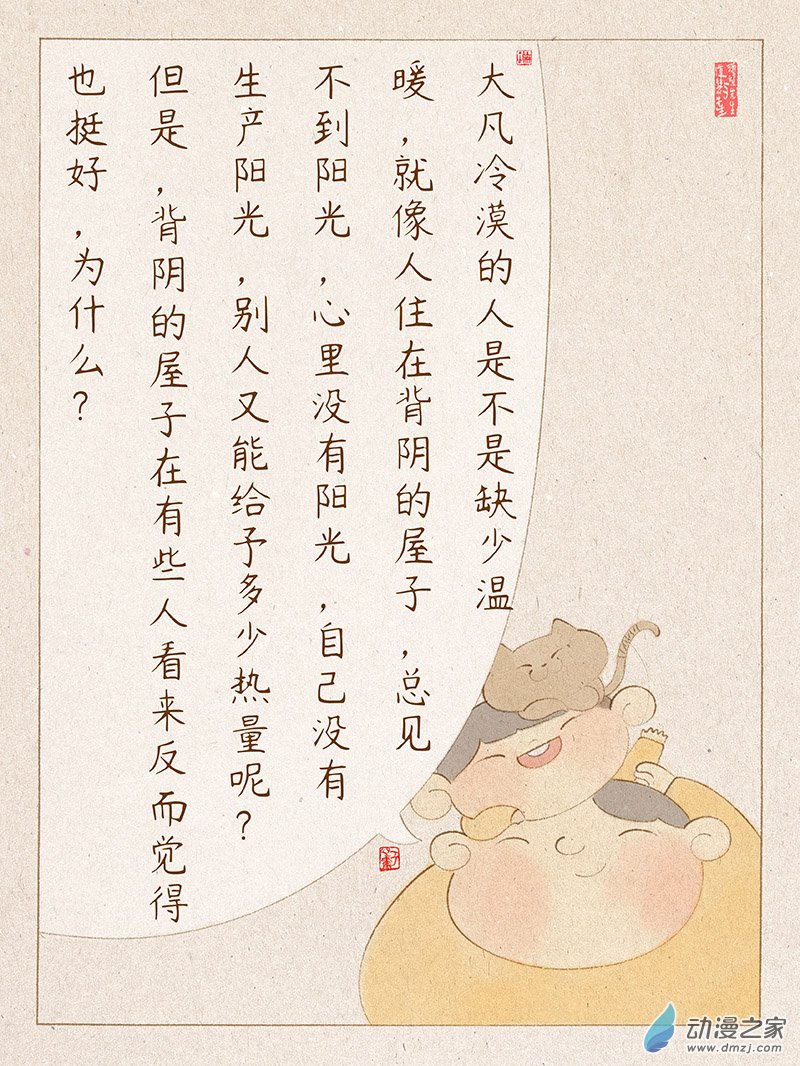 大凡冷漠的人是不是缺少温
暖，就像人住在背阴的屋子，总见
不到阳光，心里没有阳光，自己没有
生产阳光，别人又能给予多少热量呢？
但是，背阴的屋子在有些人看来反而觉得
也挺好，为什么？
动漫之家
www.dmzj.com